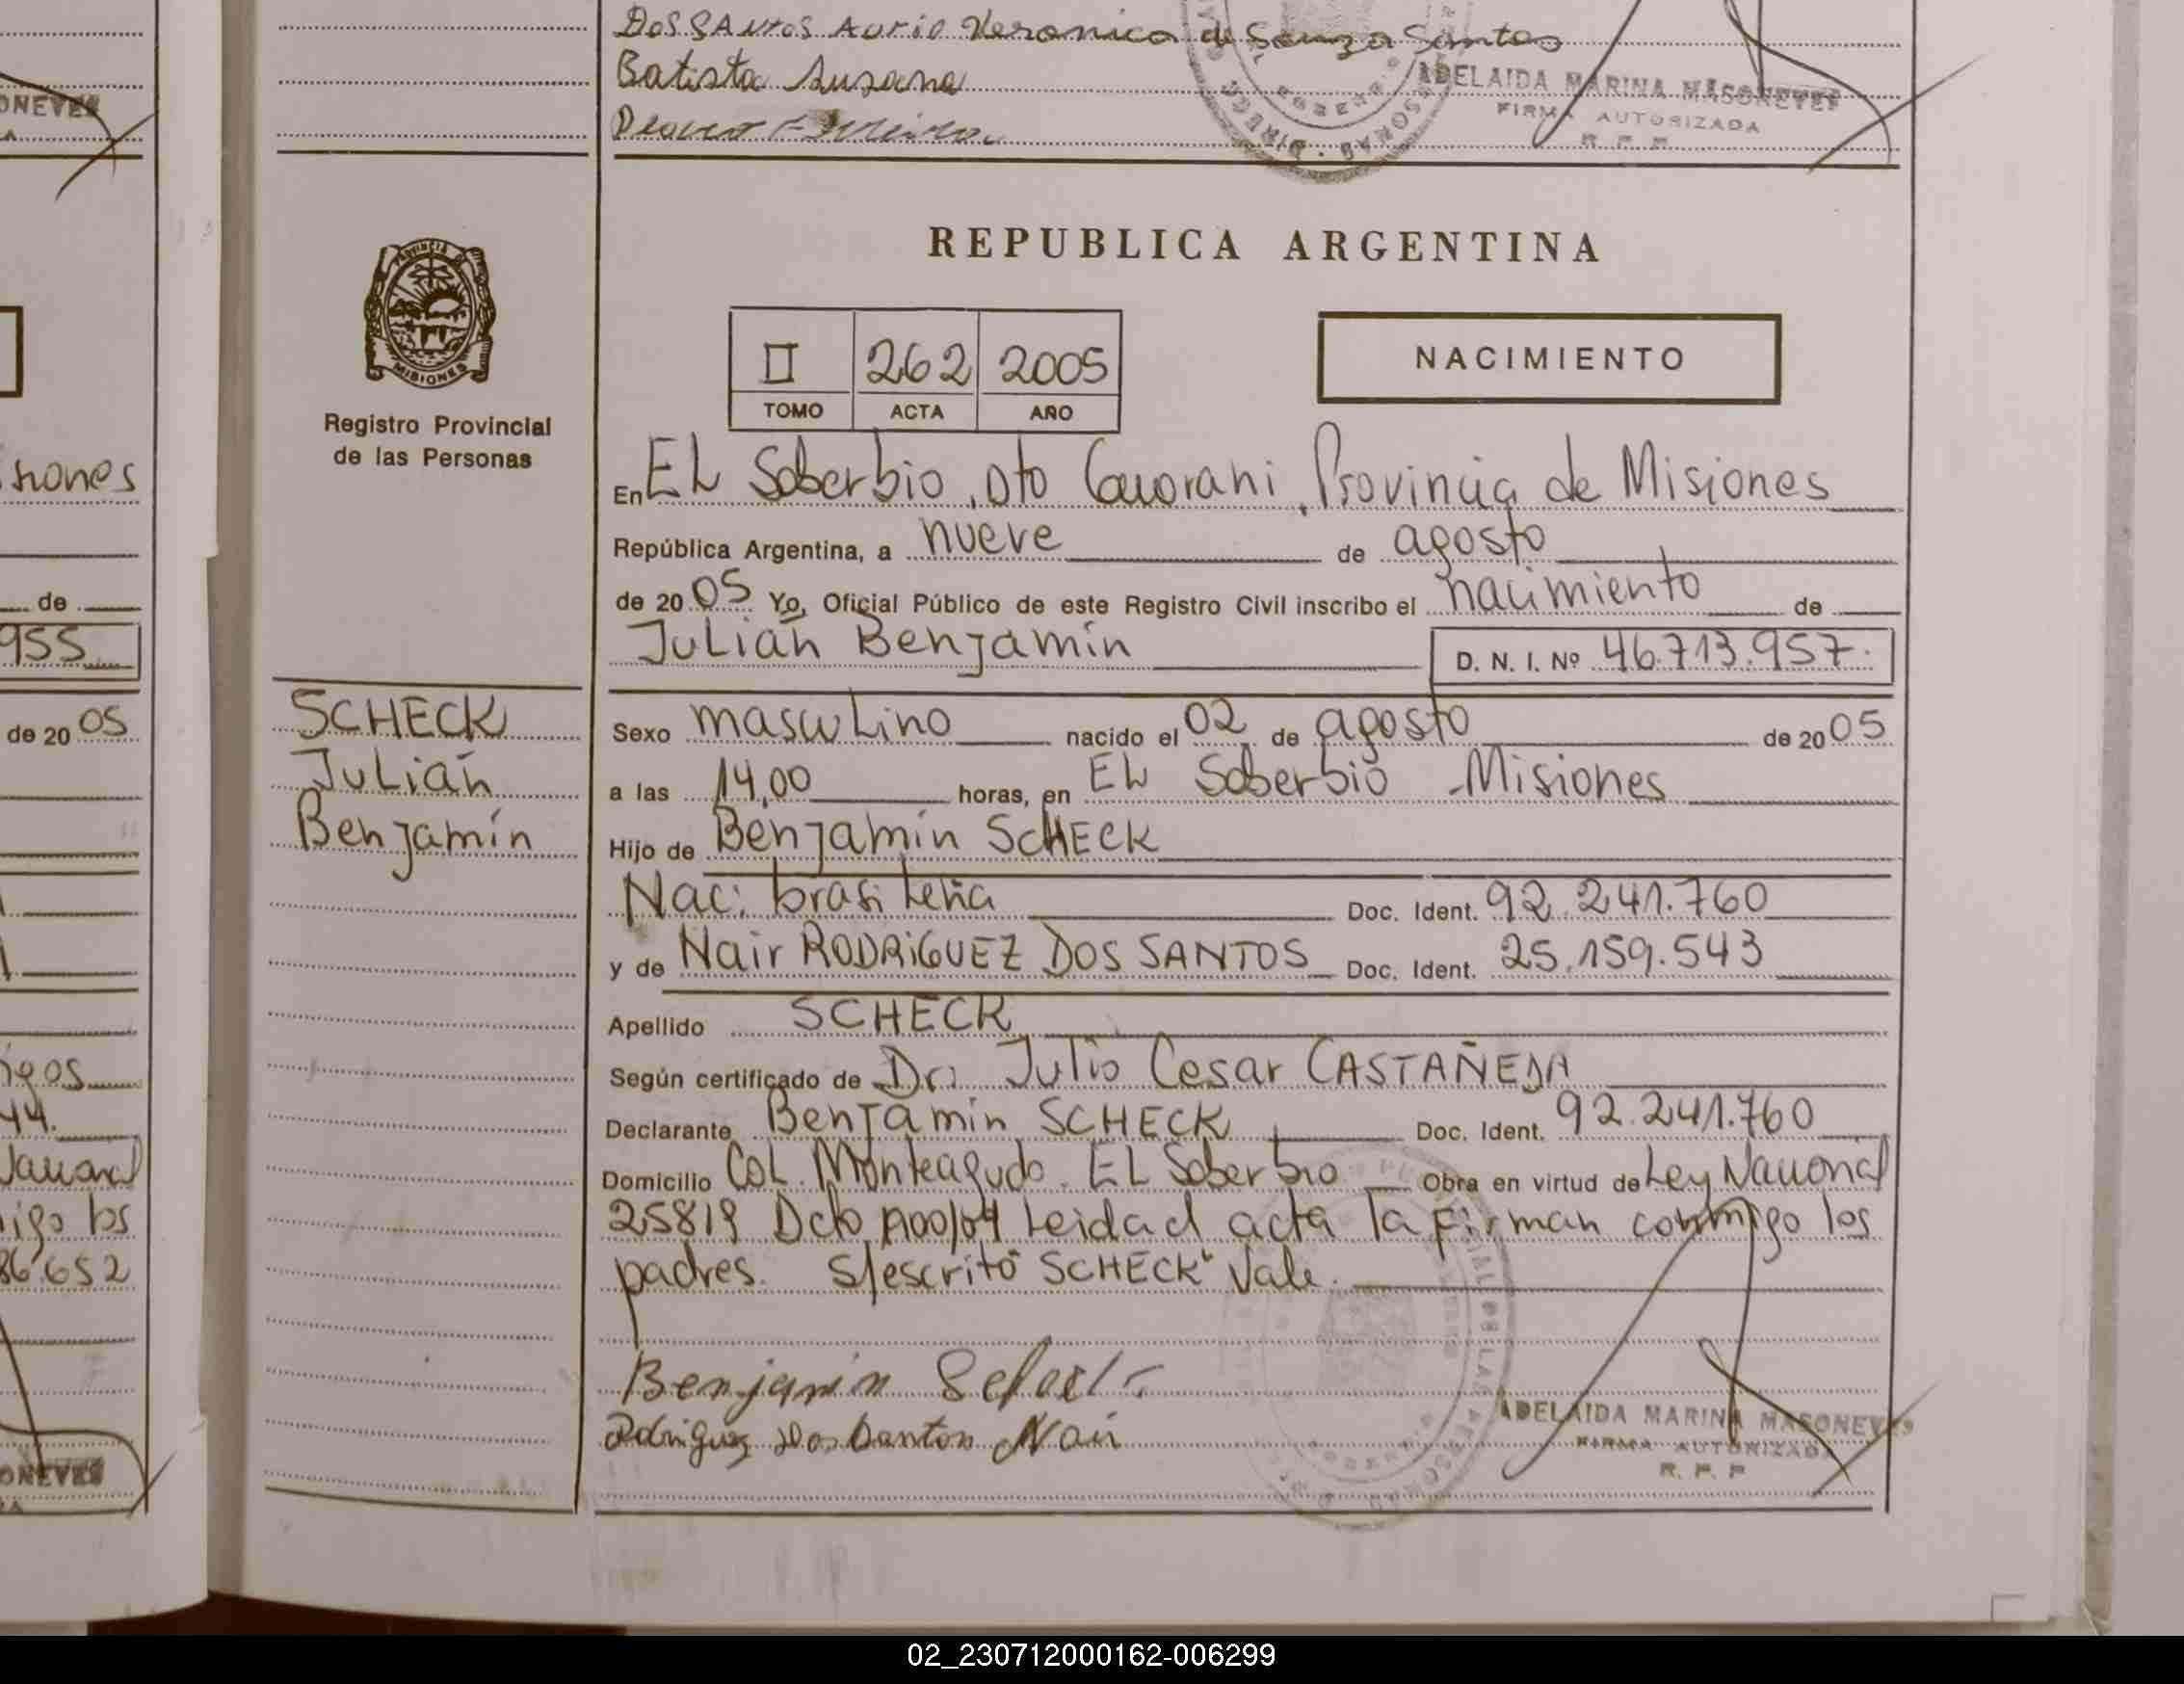 Dos SAntos Aurio Veronica de Souza Santos
Batista Susana
ADELAIDA MARINA MASONEVES
FIRMA AUTORIZADA
R. P. P.
REPUBLICA ARGENTINA
PROVINCIA DE
MISIONES
Registro Provincial
de las Personas
II 262 2005
TOMO ACTA AÑO
NACIMIENTO
En EL Soberbio, Dto Guarani, Provincia de Misiones
República Argentina, a nueve de agosto
de 2005 Yo, Oficial Público de este Registro Civil inscribo el nacimiento de
Julián Benjamín D. N. I. Nº 46.713.957.
SCHECK
Julián
Benjamín
Sexo masculino nacido el 02 de agosto de 2005
a las 14,00 horas, en EL Soberbio - Misiones
Hijo de Benjamin SCHECK
Nac: brasileña Doc. Ident. 92.241.760
y de Nair RODRIGUEZ DOS SANTOS Doc. Ident. 25.159.543
Apellido SCHECK
Según certificado de Dr: Julio Cesar CASTAÑEDA
Declarante Benjamin SCHECK Doc. Ident. 92.241.760
Domicilio Col. Monteagudo. EL Soberbio Obra en virtud de Ley Nacional
25819 Dcto 1100/04 Leida el acta la firman conmigo los
padres. S/escrito "SCHECK" Vale.
Benjamin Scheck
Rodriguez Dos Santos Nair
ADELAIDA MARINA MASONEVES
FIRMA AUTORIZADA
R. P. P
ONEVES
siones
de
955
de 20 05
igos
44.
Nacional
igo los
86.652
ONEVES
02_230712000162-006299